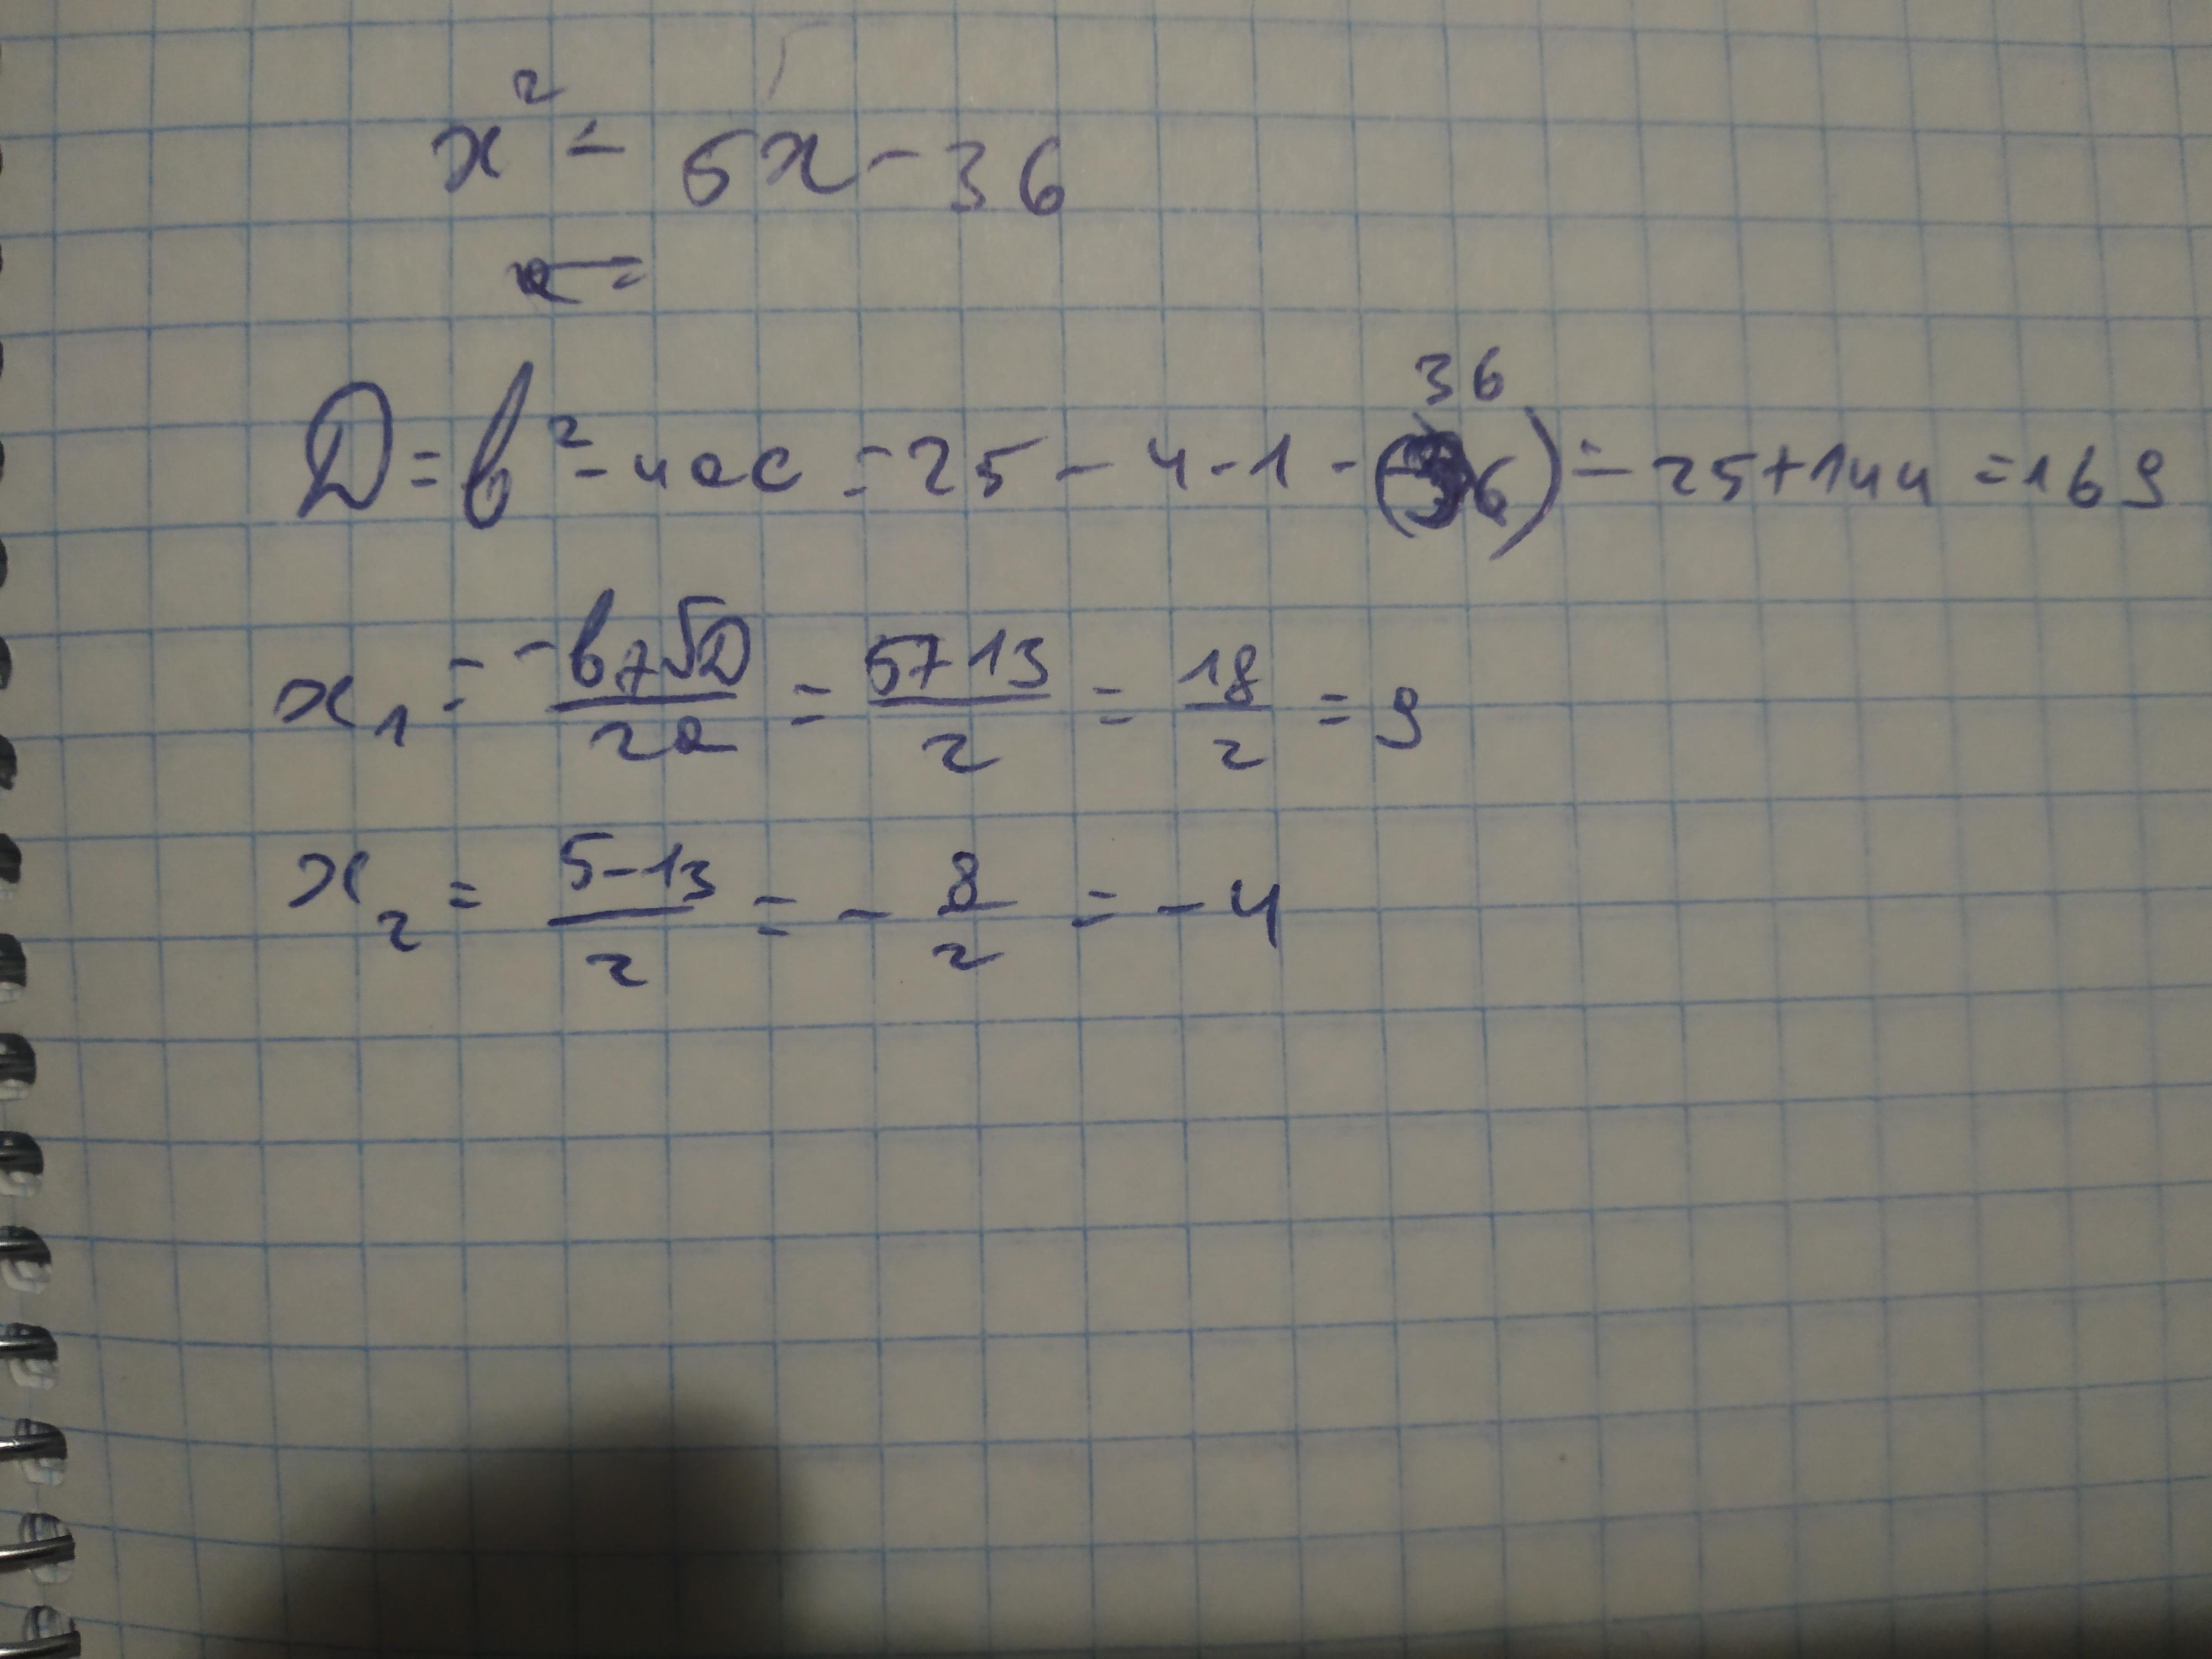 x² - 5x - 36
D = b² - 4ac = 25 - 4 · 1 · (-36) = 25 + 144 = 169
x₁ = (-b + √D)/2a = (5 + 13)/2 = 18/2 = 9
x₂ = (5 - 13)/2 = - 8/2 = - 4